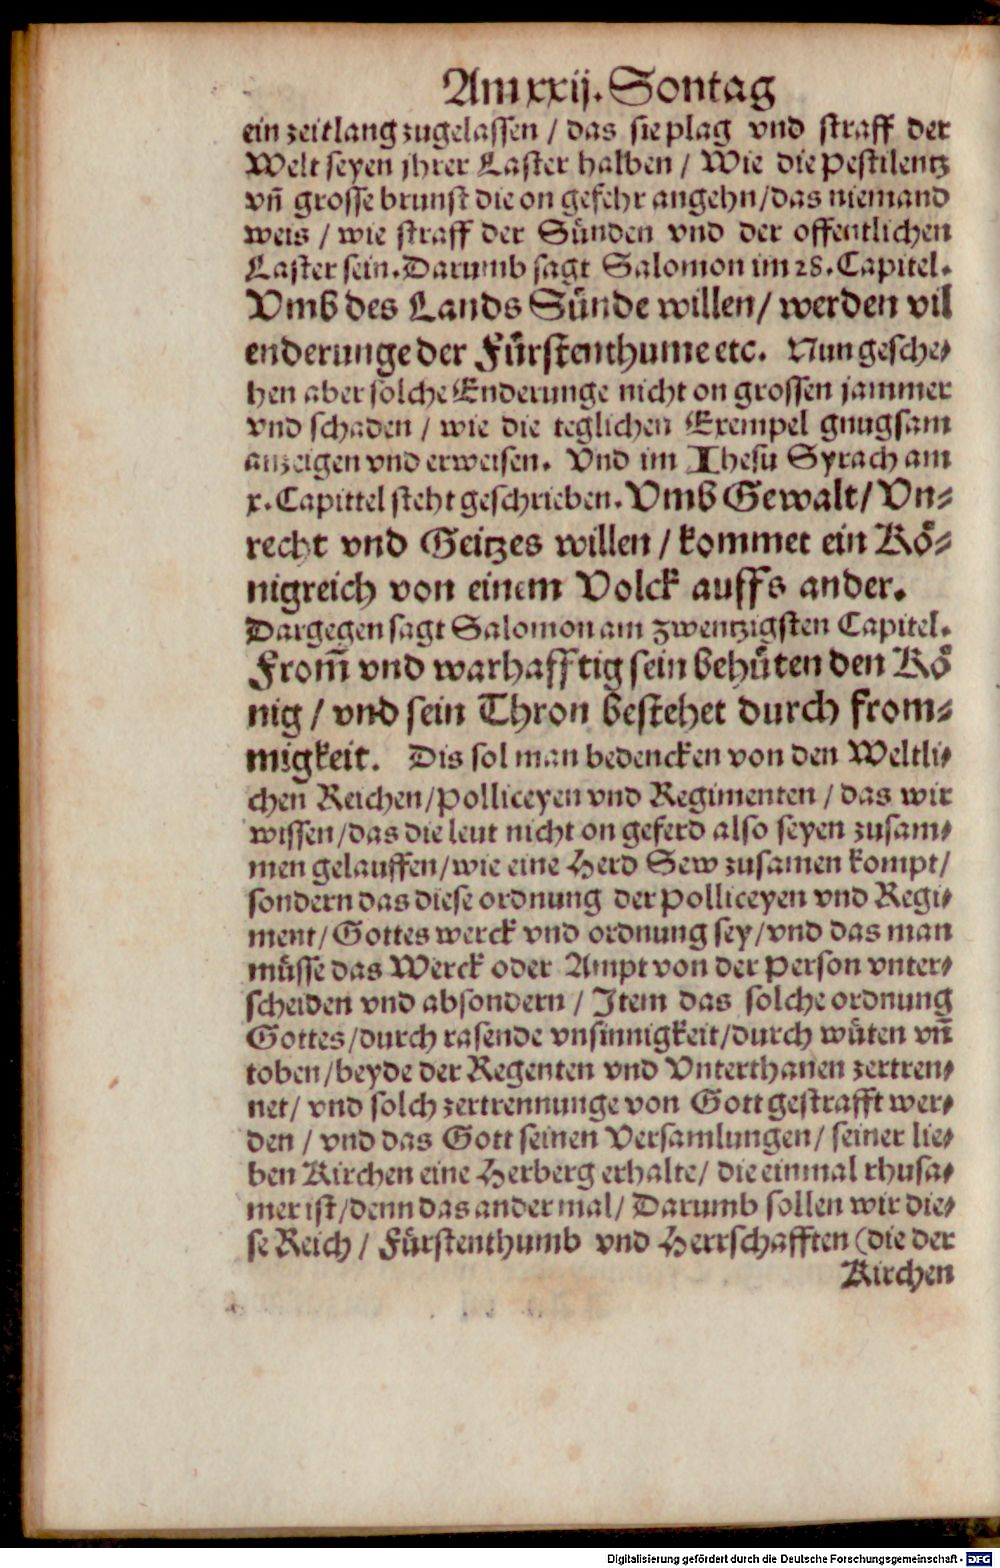 Am xxij. Sontag
ein zeitlang zugelassen / das sie plag vnd straff der
Welt seyen jhrer Laster halben / Wie die Pestilentz
vn̄ grosse brunst die on gefehr angehn / das niemand
weis / wie straff der Sünden vnd der offentlichen
Laster sein. Darumb sagt Salomon im 28. Capitel.
Vmb des Lands Sünde willen / werden vil
enderunge der Fürstenthume etc. Nun gesche-
hen aber solche Enderunge nicht on grossen jammer
vnd schaden / wie die teglichen Exempel gnugsam
anzeigen vnd erweisen. Vnd im Jhesu Syrach am
x. Capittel steht geschrieben. Vmb Gewalt / Vn-
recht vnd Geitzes willen / kommet ein Kö-
nigreich von einem Volck auffs ander.
Dargegen sagt Salomon am zwentzigsten Capitel.
From̄ vnd warhafftig sein behüten den Kö
nig / vnd sein Thron bestehet durch from-
migkeit. Dis sol man bedencken von den Weltli-
chen Reichen / Polliceyen vnd Regimenten / das wir
wissen / das die leut nicht on geferd also seyen zusam-
men gelauffen / wie eine Herd Sew zusamen kompt /
sondern das diese ordnung der Polliceyen vnd Regi-
ment / Gottes werck vnd ordnung sey / vnd das man
müsse das Werck oder Ampt von der Person vnter-
scheiden vnd absondern / Item das solche ordnung
Gottes / durch rasende vnsinnigkeit / durch wüten vn̄
toben / beyde der Regenten vnd Vnterthanen zertren-
net / vnd solch zertrennunge von Gott gestrafft wer-
den / vnd das Gott seinen Versamlungen / seiner lie-
ben Kirchen eine Herberg erhalte / die einmal rhusa-
mer ist / denn das ander mal / Darumb sollen wir die-
se Reich / Fürstenthumb vnd Herrschafften (die der
Kirchen
Digitalisierung gefördert durch die Deutsche Forschungsgemeinschaft - DFG